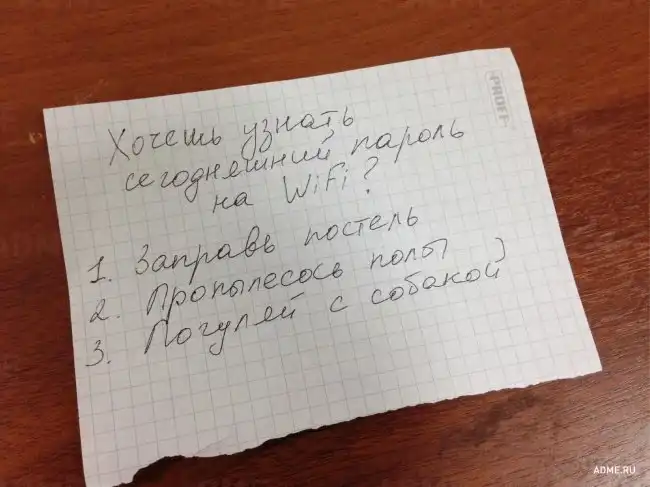 Хочешь узнать
сегодняшний пароль
на WiFi?
1. Заправь постель
2. Пропылесось полы
3. Погуляй с собакой)
PROFF
ADME.RU